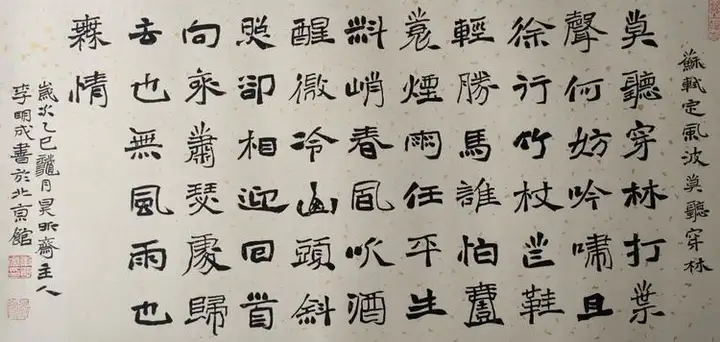 蘇軾定風波莫聽穿林
莫聽穿林打葉
聲何妨吟嘯且
徐行竹杖芒鞋
輕勝馬誰怕壹
蓑煙雨任平生
料峭春風吹酒
醒微冷山頭斜
照卻相迎回首
向來蕭瑟處歸
去也無風雨也
無情
歲次乙巳月昊昕齋主人
李明成書於北京館